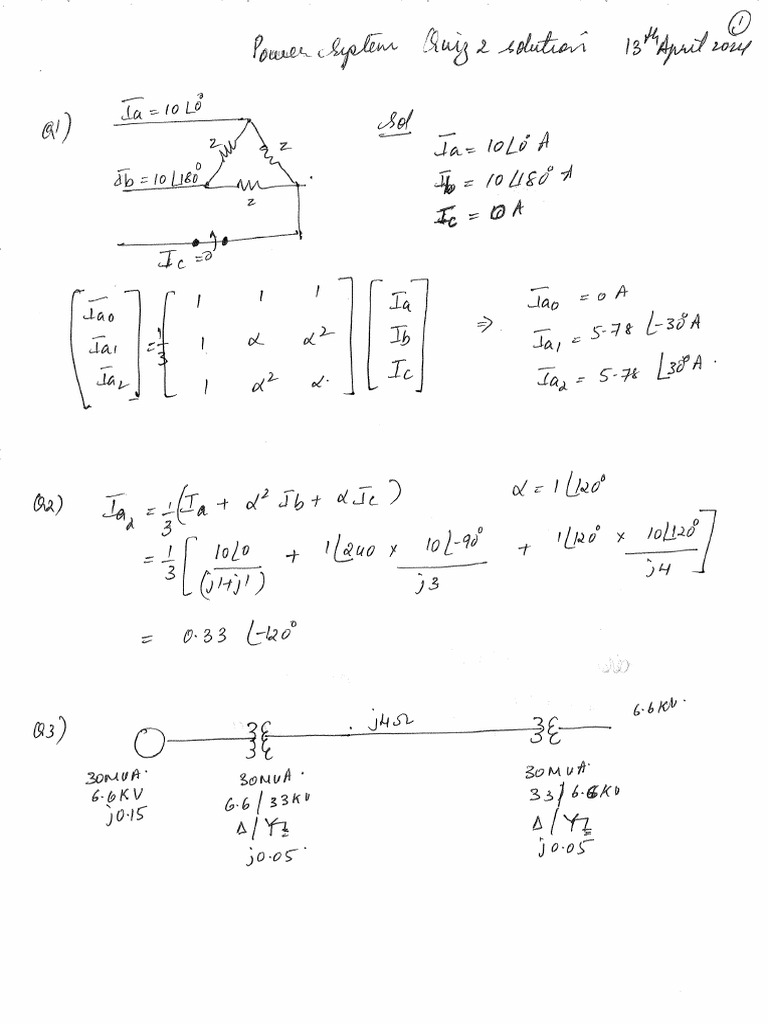 ①
Power System Quiz 2 solution 13th April 2024
Q1)
Ia = 10∠0°
z z
Ib = 10∠180°
z
Ic = 0
Sol
Ia = 10∠0° A
Ib = 10∠180° A
Ic = 0 A
[Ia0 Ia1 Ia2] = 1/3 [1 1 1; 1 α α²; 1 α² α] [Ia Ib Ic] ⇒
Ia0 = 0 A
Ia1 = 5.78 ∠-30° A
Ia2 = 5.78 ∠30° A.
Q2) Ia2 = 1/3 (Ia + α² Ib + α Ic) α = 1∠120°
= 1/3 [ 10∠0 / (j1+j1) + 1∠240 × 10∠-90° / j3 + 1∠120° × 10∠120° / j4 ]
= 0.33 ∠-120°
Q3)
j4Ω
6.6KV.
30MVA.
6.6KV
j0.15
30MVA.
6.6/33KV
Δ/Y
j0.05
30MVA
33/6.6KV
Δ/Y
j0.05